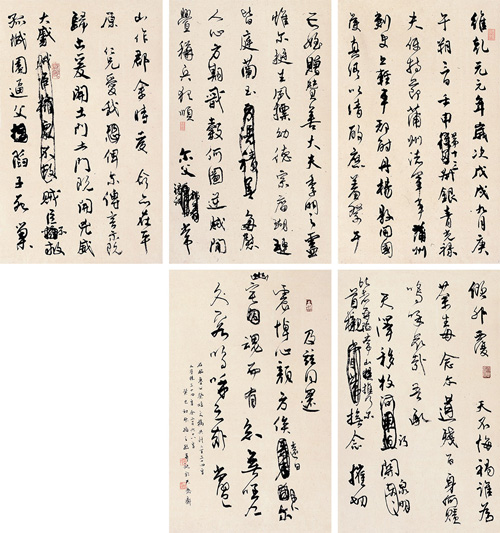 維乾元元年歲次戊戌九月庚
午朔三日壬申第十三叔銀青光祿
夫使持節蒲州諸軍事蒲州
刺史上輕車都尉丹楊縣開國
侯真卿以清酌庶羞祭于
亡姪贈贊善大夫季明之靈
惟爾挺生夙標幼德宗廟瑚璉
階庭蘭玉每慰
人心方期戩穀何圖逆賊閒
釁稱兵犯順
爾父常
山作郡余時受命亦在平
原仁兄愛我俾爾傳言爾既
歸止爰開土門土門既開凶威
大蹙賊臣不救
孤城圍逼父陷子死巢
傾卵覆天不悔禍誰為
荼毒念爾遘殘百身何贖
嗚呼哀哉吾承
天澤移牧河關泉明
比者再陷常山攜爾
首櫬撫念摧切
及茲同還
震悼心顏方俟遠日爾
幽宅魂而有知無嗟
久客嗚呼哀哉尚饗